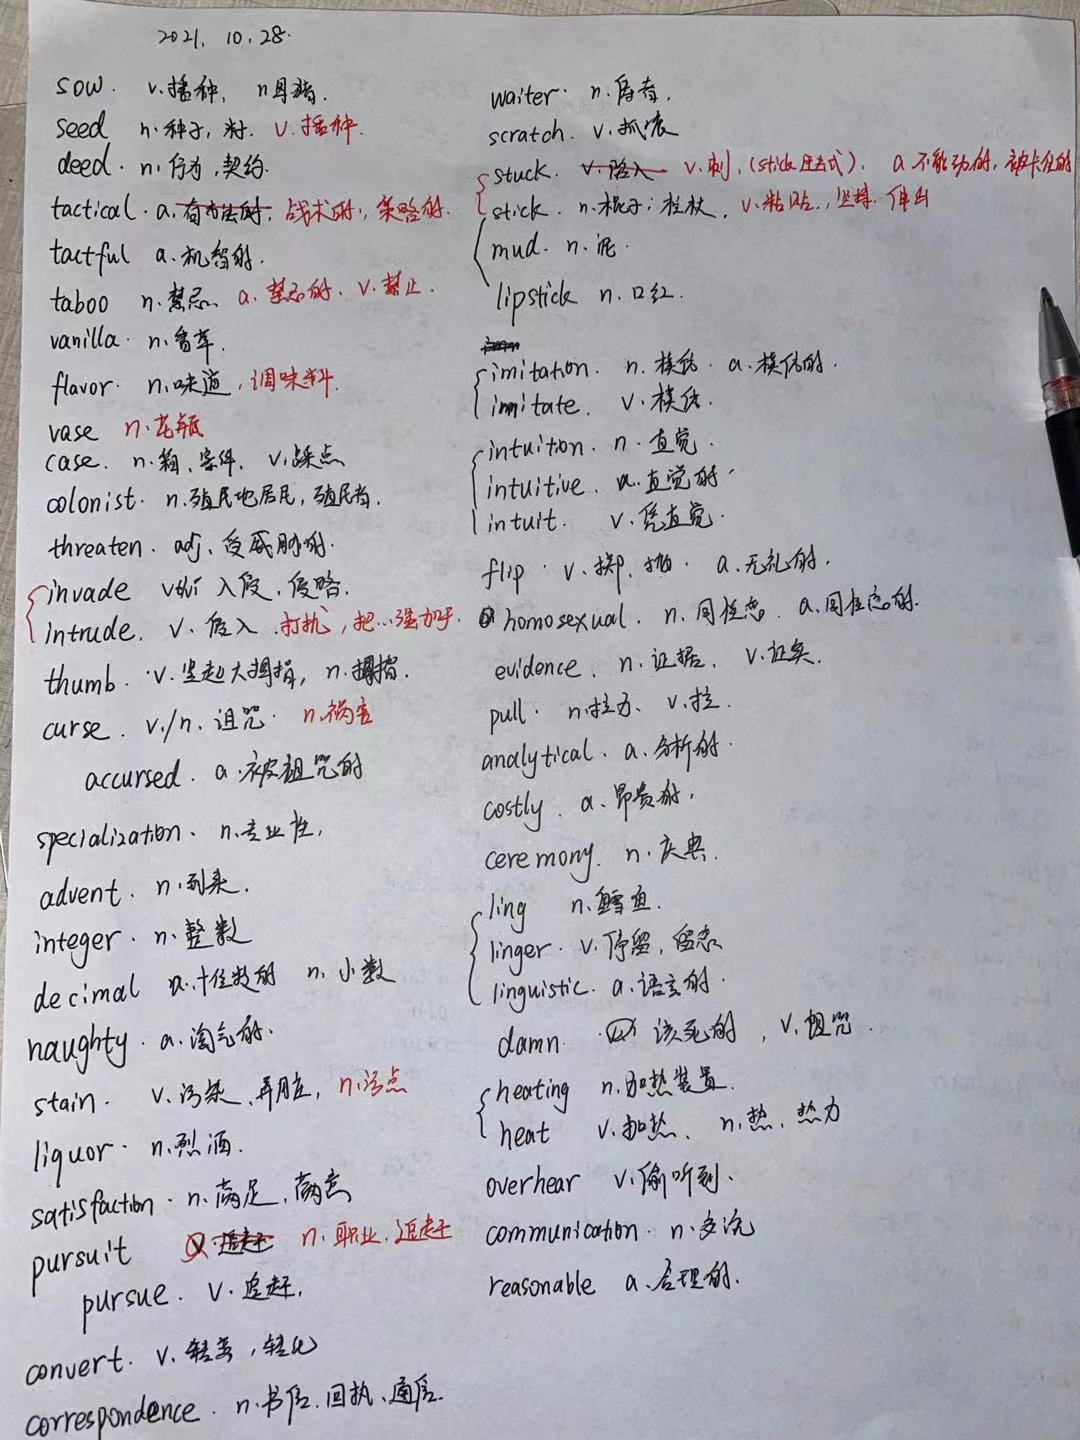 2021. 10. 28.
sow. v.播种, n母猪.
seed n.种子,籽. v.播种.
deed. n.行为,契约.
tactical. a.有方法的, 战术的, 策略的.
tactful a.机智的.
taboo n.禁忌、a.禁忌的、v.禁止.
vanilla. n.香草.
flavor. n.味道,调味料.
vase n.花瓶
case. n.箱、案件, v.踩点
colonist. n.殖民地居民,殖民者.
threaten. adj、受威胁的.
invade v. 入侵、侵略.
intrude. v.侵入.打扰,把...强加于.
thumb. v.竖起大拇指, n.拇指.
curse. v./n. 诅咒. n.祸害
accursed. a.被诅咒的
specialization. n.专业性,
advent. n.到来.
integer. n.整数
decimal a.十位数的 n.小数
naughty. a.淘气的.
stain. v.污染、弄脏, n.污点
liquor. n.烈酒.
satisfaction. n.满足,满意
pursuit v.追赶 n.职业,追赶
pursue. v.追赶,
convert. v.转变,转化
correspondence. n.书信.回执、通信.
waiter. n.侍者.
scratch. v.抓痕
stuck. v.陷入 v.刺,(stick过去式). a.不能动的,被卡住的
stick. n.棍子;拄杖, v.粘贴,坚持.伸出
mud. n.泥.
lipstick n.口红.
imitation. n.模仿. a.模仿的.
imitate. v.模仿.
intuition. n.直觉.
intuitive. a.直觉的.
intuit. v.凭直觉.
flip. v.掷,抛. a.无礼的.
homosexual. n.同性恋. a.同性恋的.
evidence. n.证据、v.证实.
pull. n.拉力、v.拉.
analytical. a.分析的.
costly. a.昂贵的,
ceremony. n.庆典.
ling n.鳕鱼.
linger. v.停留,留恋
linguistic. a.语言的.
damn. 该死的, v.诅咒.
heating n.加热装置.
heat v.加热、n.热、热力
overhear v.偷听到.
communication. n.交流
reasonable a.合理的.